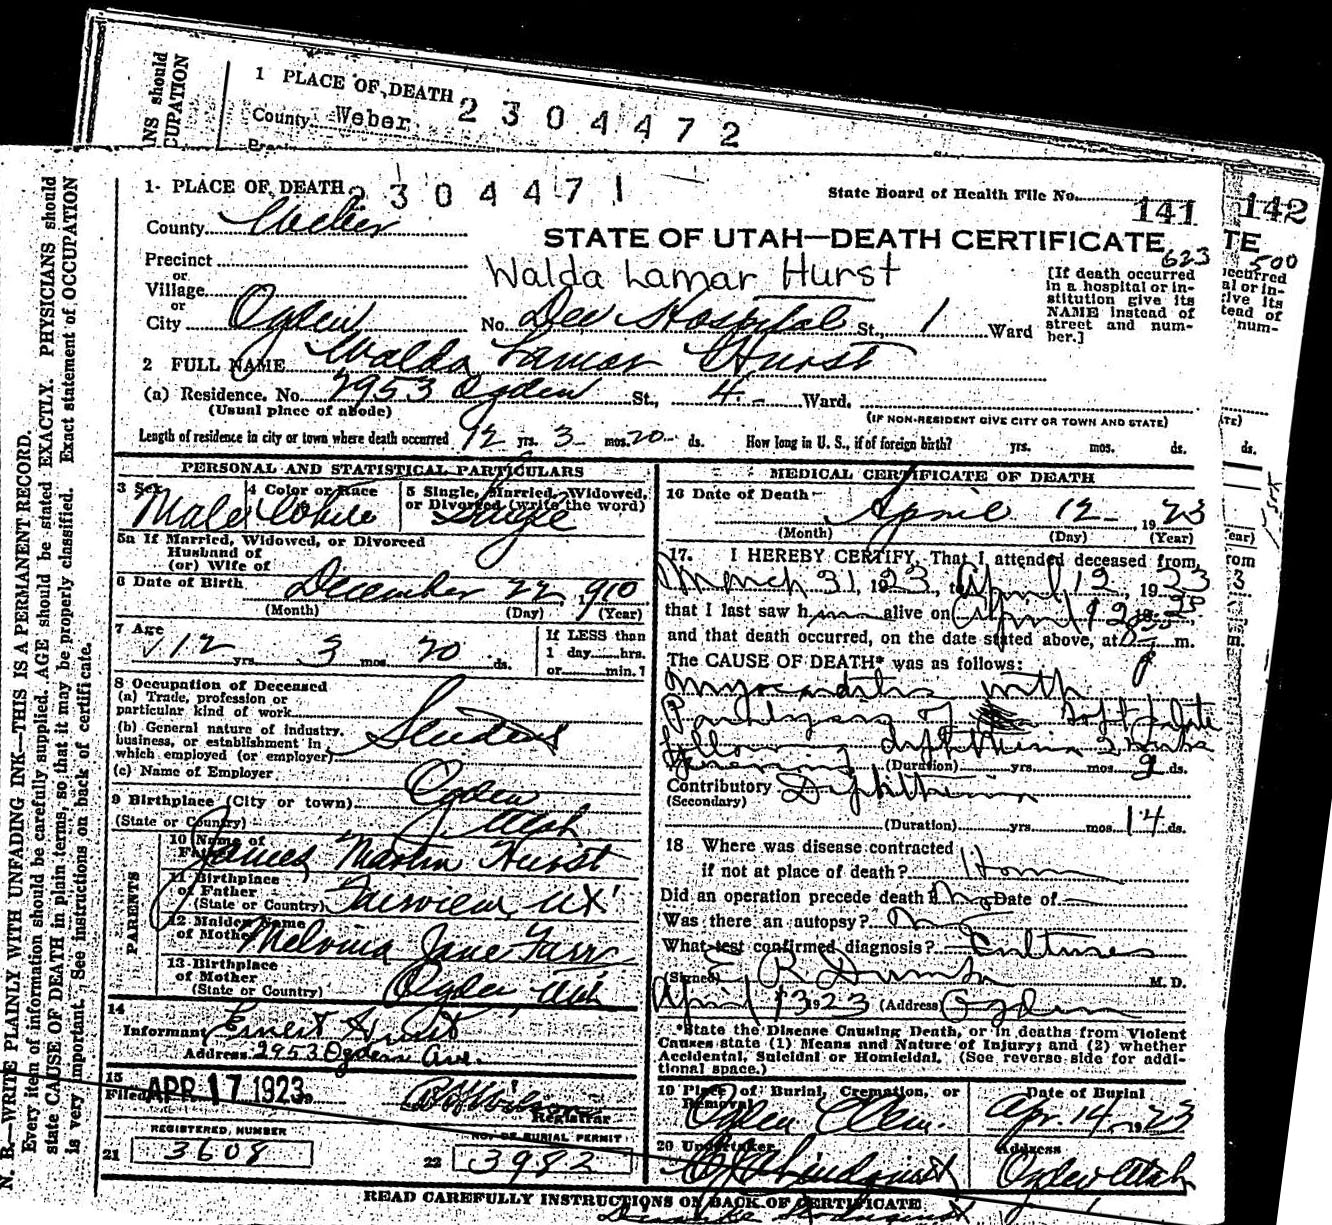 NS should
CUPATION
1 PLACE OF DEATH 2304472
County Weber
1- PLACE OF DEATH 2304471
State Board of Health File No. 141
142
County Weber
STATE OF UTAH—DEATH CERTIFICATE
TE
623
500
Precinct
or
Village
or
City Ogden
Walda Lamar Hurst
No. Dee Hospital St., 1 Ward
[If death occurred
in a hospital or in-
stitution give its
NAME instead of
street and num-
ber.]
2 FULL NAME Walda Lamar Hurst
(a) Residence. No. 2953 Ogden St., 4 Ward.
(Usual place of abode)
(IF NON-RESIDENT GIVE CITY OR TOWN AND STATE)
Length of residence in city or town where death occurred 12 yrs. 3 mos. 20 ds. How long in U. S., if of foreign birth? yrs. mos. ds.
PERSONAL AND STATISTICAL PARTICULARS
3 Sex Male
4 Color or Race White
5 Single, Married, Widowed,
or Divorced (write the word) Single
5a If Married, Widowed, or Divorced
Husband of
(or) Wife of
6 Date of Birth December 22, 1910
(Month) (Day) (Year)
7 Age 12 yrs. 3 mos. 20 ds.
If LESS than
1 day hrs.
or min.?
8 Occupation of Deceased
(a) Trade, profession or
particular kind of work
(b) General nature of industry,
business, or establishment in
which employed (or employer) Student
(c) Name of Employer
9 Birthplace (City or town) Ogden
(State or Country) Utah
PARENTS
10 Name of
Father James Martin Hurst
11 Birthplace
of Father
(State or Country) Fairview, Ut
12 Maiden Name
of Mother Melvina Jane Farr
13 Birthplace
of Mother
(State or Country) Ogden, Utah
14
Informant Ernest Hurst
Address 2953 Ogden Ave.
15
Filed APR 17 1923
Registrar
REGISTERED NUMBER
21 3608
NO. OF BURIAL PERMIT
22 3982
MEDICAL CERTIFICATE OF DEATH
16 Date of Death April 12 1923
(Month) (Day) (Year)
17. I HEREBY CERTIFY, That I attended deceased from
March 31, 1923, to April 12, 1923
that I last saw him alive on April 12, 1923
and that death occurred, on the date stated above, at 8 P m.
The CAUSE OF DEATH* was as follows:
Myocarditis with
Paralysis of soft palate
following diphtheria 2 weeks
(Duration) yrs. mos. 9 ds.
Contributory Diphtheria
(Secondary)
(Duration) yrs. mos. 14 ds.
18 Where was disease contracted
if not at place of death? Home
Did an operation precede death? No Date of
Was there an autopsy? No
What test confirmed diagnosis? Cultures
(Signed) E R Dumke M. D.
April 13 1923 (Address) Ogden
*State the Disease Causing Death, or in deaths from Violent
Causes state (1) Means and Nature of Injury; and (2) whether
Accidental, Suicidal or Homicidal. (See reverse side for addi-
tional space.)
19 Place of Burial, Cremation, or
Removal Ogden Cem.
Date of Burial
Apr. 14, 1923
20 Undertaker
Address
Ogden Utah
READ CAREFULLY INSTRUCTIONS ON BACK OF CERTIFICATE
N. B.—WRITE PLAINLY WITH UNFADING INK—THIS IS A PERMANENT RECORD.
Every item of information should be carefully supplied. AGE should be stated EXACTLY. PHYSICIANS should
state CAUSE OF DEATH in plain terms, so that it may be properly classified. Exact statement of OCCUPATION
is very important. See instructions on back of certificate.